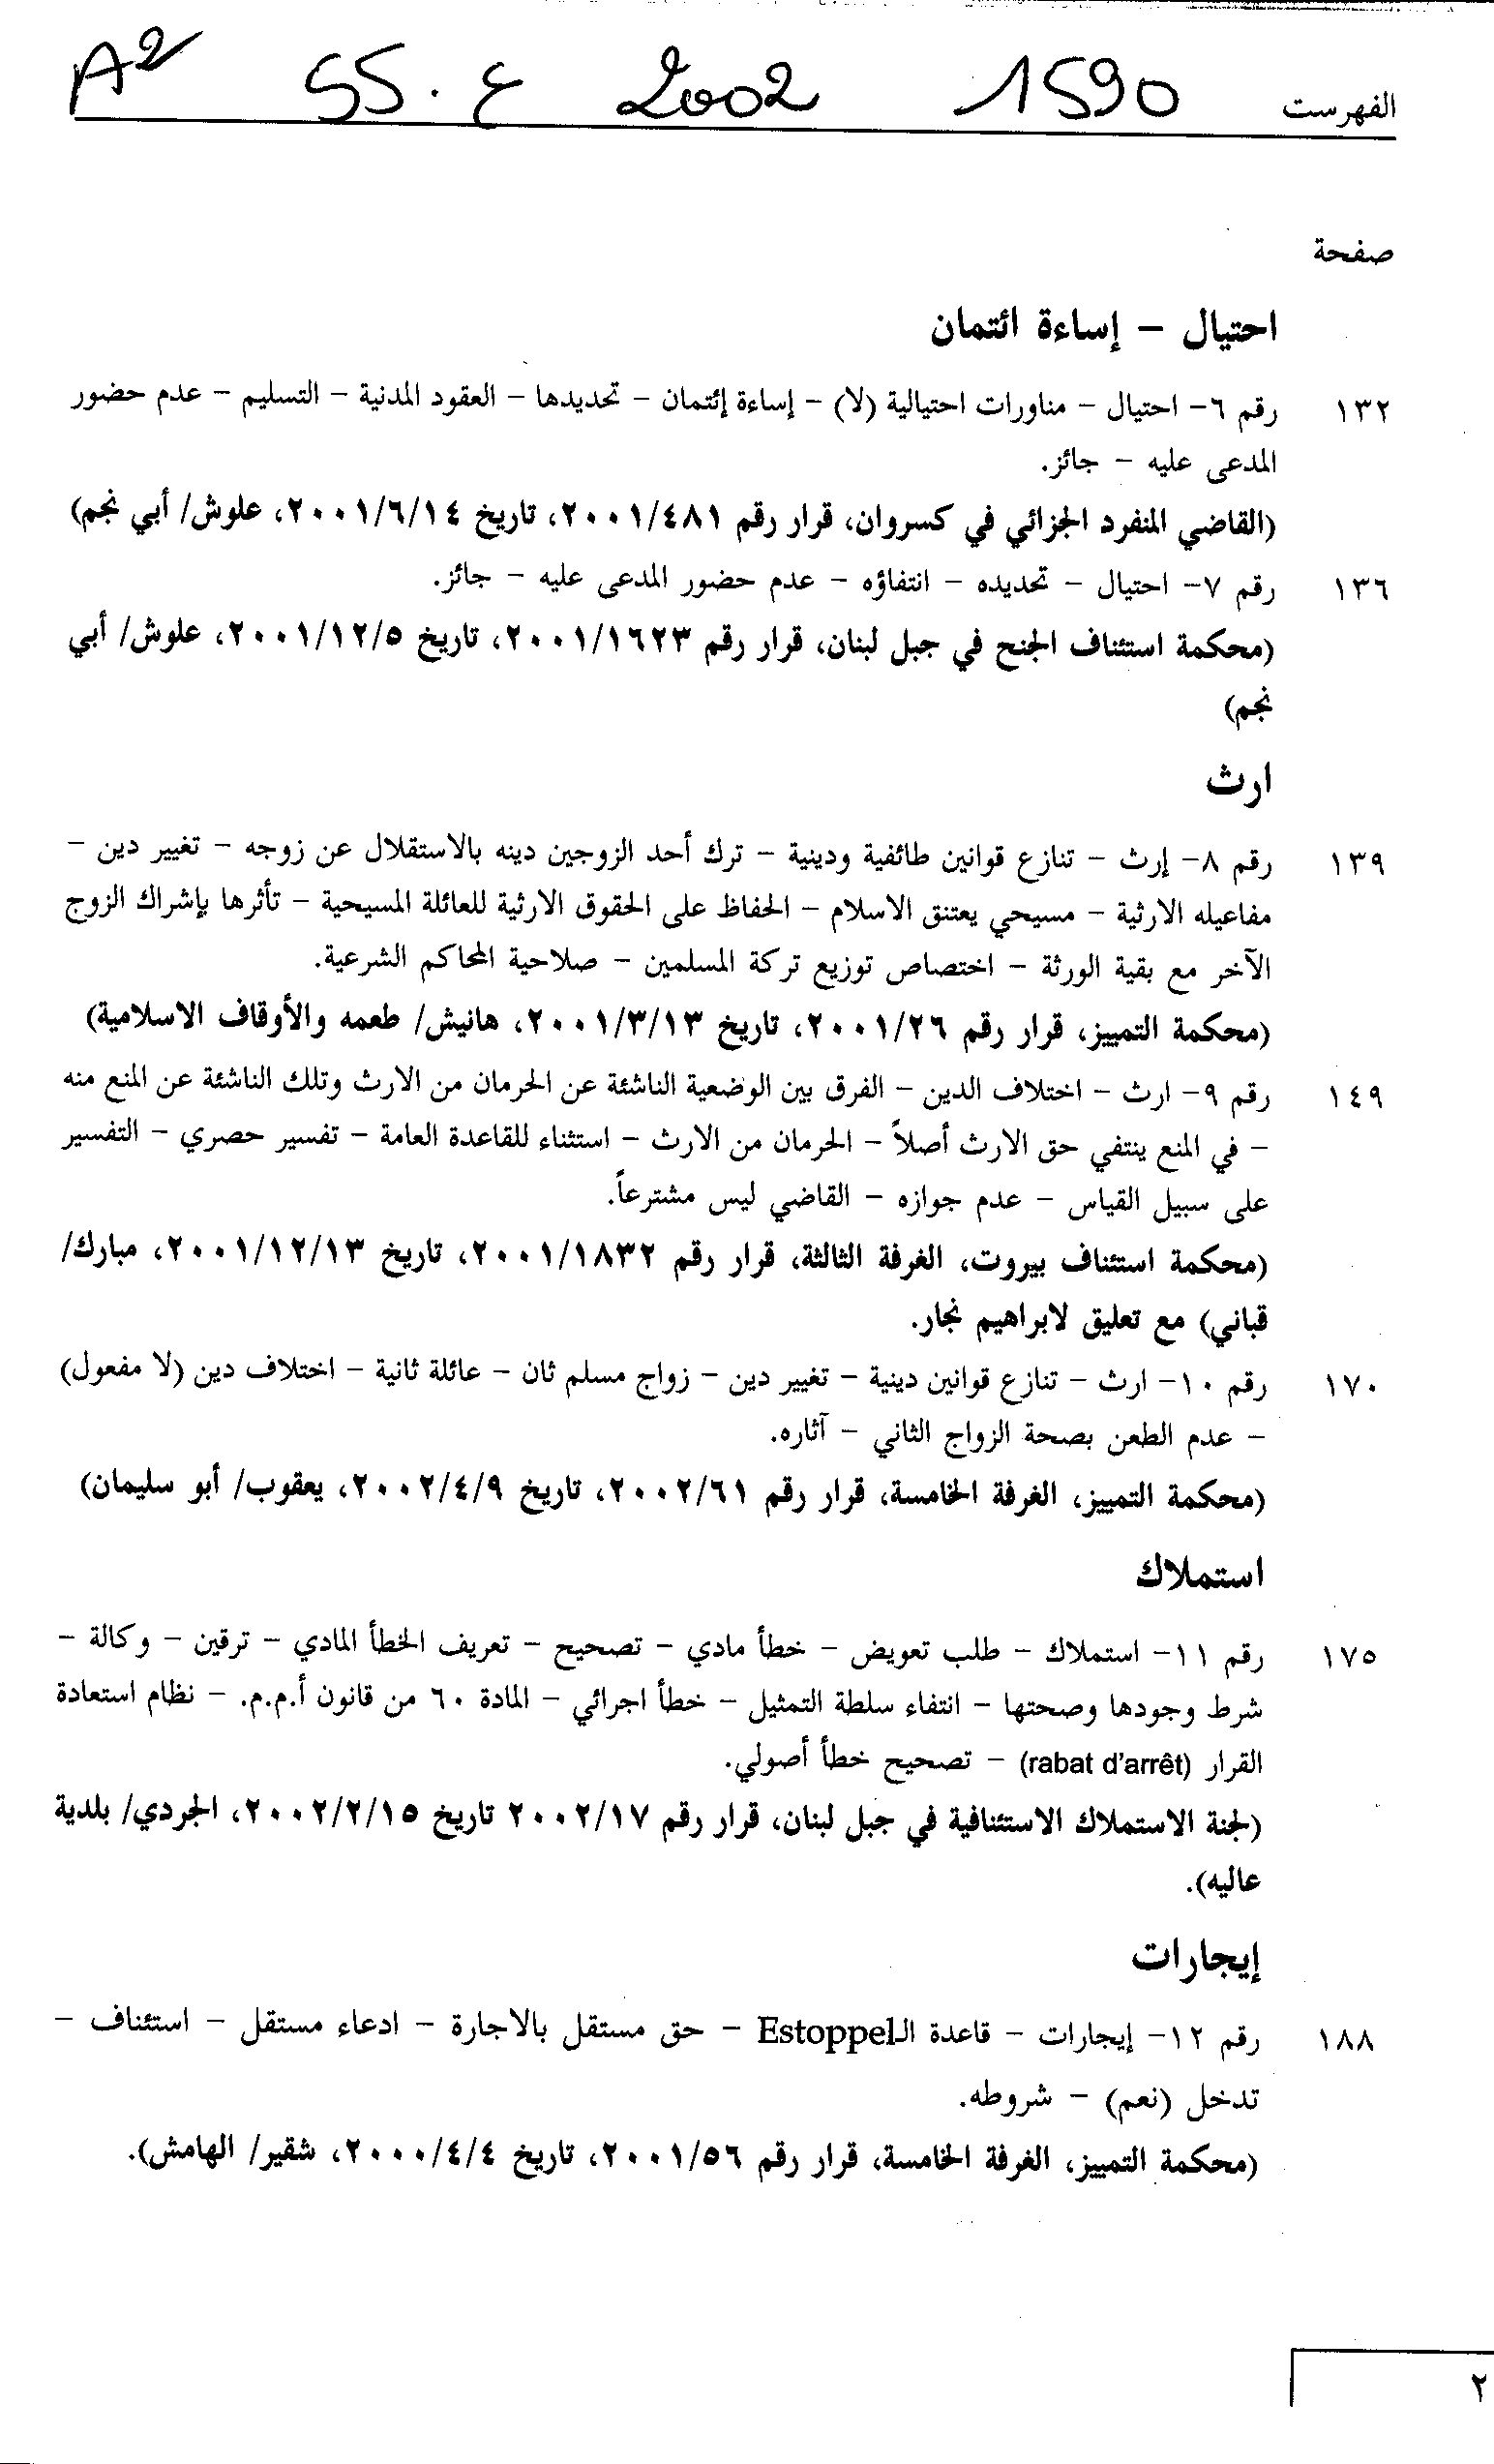 A2 SS.ع 2002 1590 الفهرست
صفحة
احتيال – إساءة ائتمان
١٣٢ رقم ٦- احتيال – مناورات احتيالية (لا) – إساءة إئتمان – تحديدها – العقود المدنية – التسليم – عدم حضور
المدعى عليه – جائز.
(القاضي المنفرد الجزائي في كسروان، قرار رقم ٢٠٠١/٤٨١، تاريخ ٢٠٠١/٦/١٤، علوش/ أبي نجم)
١٣٦ رقم ٧- احتيال – تحديده – انتفاؤه – عدم حضور المدعى عليه – جائز.
(محكمة استئناف الجنح في جبل لبنان، قرار رقم ٢٠٠١/١٦٢٣، تاريخ ٢٠٠١/١٢/٥، علوش/ أبي
نجم)
ارث
١٣٩ رقم ٨- إرث – تنازع قوانين طائفية ودينية – ترك أحد الزوجين دينه بالاستقلال عن زوجه – تغيير دين –
مفاعيله الارثية – مسيحي يعتنق الاسلام – الحفاظ على الحقوق الارثية للعائلة المسيحية – تأثرها بإشراك الزوج
الآخر مع بقية الورثة – اختصاص توزيع تركة المسلمين – صلاحية المحاكم الشرعية.
(محكمة التمييز، قرار رقم ٢٠٠١/٢٦، تاريخ ٢٠٠١/٣/١٣، هانيش/ طعمه والأوقاف الاسلامية)
١٤٩ رقم ٩- ارث – اختلاف الدين – الفرق بين الوضعية الناشئة عن الحرمان من الارث وتلك الناشئة عن المنع منه
– في المنع ينتفي حق الارث أصلاً – الحرمان من الارث – استثناء للقاعدة العامة – تفسير حصري – التفسير
على سبيل القياس – عدم جوازه – القاضي ليس مشترعاً.
(محكمة استئناف بيروت، الغرفة الثالثة، قرار رقم ٢٠٠١/١٨٣٢، تاريخ ٢٠٠١/١٢/١٣، مبارك/
قباني) مع تعليق لابراهيم نجار.
١٧٠ رقم ١٠- ارث – تنازع قوانين دينية – تغيير دين – زواج مسلم ثان – عائلة ثانية – اختلاف دين (لا مفعول)
– عدم الطعن بصحة الزواج الثاني – آثاره.
(محكمة التمييز، الغرفة الخامسة، قرار رقم ٢٠٠٢/٦١، تاريخ ٢٠٠٢/٤/٩، يعقوب/ أبو سليمان)
استملاك
١٧٥ رقم ١١- استملاك – طلب تعويض – خطأ مادي – تصحيح – تعريف الخطأ المادي – ترقين – وكالة –
شرط وجودها وصحتها – انتفاء سلطة التمثيل – خطأ اجرائي – المادة ٦٠ من قانون أ.م.م. – نظام استعادة
القرار (rabat d'arrêt) – تصحيح خطأ أصولي.
(لجنة الاستملاك الاستئنافية في جبل لبنان، قرار رقم ٢٠٠٢/١٧ تاريخ ٢٠٠٢/٢/١٥، الجردي/ بلدية
عاليه).
إيجارات
١٨٨ رقم ١٢- إيجارات – قاعدة الـEstoppel – حق مستقل بالاجارة – ادعاء مستقل – استئناف –
تدخل (نعم) – شروطه.
(محكمة التمييز، الغرفة الخامسة، قرار رقم ٢٠٠١/٥٦، تاريخ ٢٠٠٠/٤/٤، شقير/ الهامش).
٢